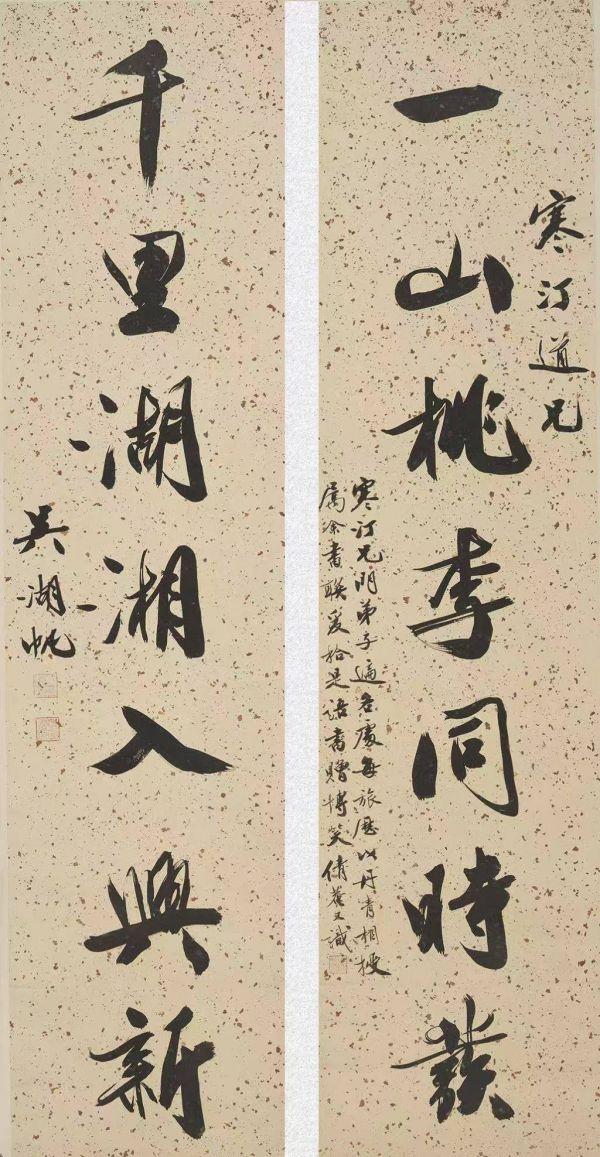 寒汀道兄
一山桃李同時發
寒汀兄門弟子遍各處每旅歷以丹青相授
属余書聯爰拾是語書贈博笑倩菴又識
千里湖湘入興新
吳湖帆